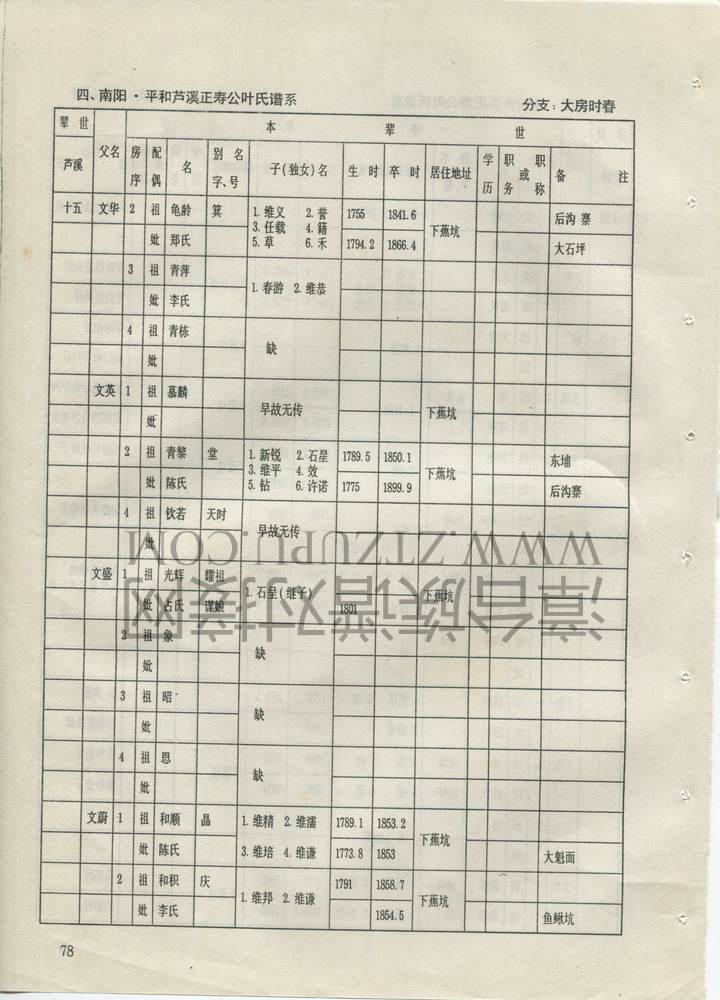 四、南阳·平和芦溪正寿公叶氏谱系 分支：大房时春
辈世 本 辈 世
芦溪 父名 房序 配偶 名 别名字、号 子(独女)名 生时 卒时 居住地址 学历 职或职务称 备注
十五 文华 2 祖 龟龄 箕 1.维义 2.誉 1755 1841.6 下蕉坑 后沟寨
3.任载 4.籍
妣 郑氏 5.草 6.禾 1794.2 1866.4 大石坪
3 祖 青萍 1.春游 2.维恭
妣 李氏
4 祖 青栋 缺
妣
文英 1 祖 慕麟 早故无传 下蕉坑
妣
2 祖 青黎 堂 1.新锐 2.石星 1789.5 1850.1 下蕉坑 东埔
3.维平 4.效
妣 陈氏 5.钻 6.许诺 1775 1899.9 后沟寨
4 祖 钦若 天时 早故无传
妣
WWW.ZTZUPU.COM
漳台族谱对接网
文盛 1 祖 光辉 耀祖 1.石呈(继子) 下蕉坑
妣 占氏 谋娘 1801
2 祖 象 缺
妣
3 祖 昭 缺
妣
4 祖 思 缺
妣
文蔚 1 祖 和顺 晶 1.维精 2.维濡 1789.1 1853.2 下蕉坑
妣 陈氏 3.维培 4.维谦 1773.8 1853 大魁面
2 祖 和积 庆 1.维邦 2.维谦 1791 1858.7 下蕉坑
妣 李氏 1854.5 鱼鳅坑
78